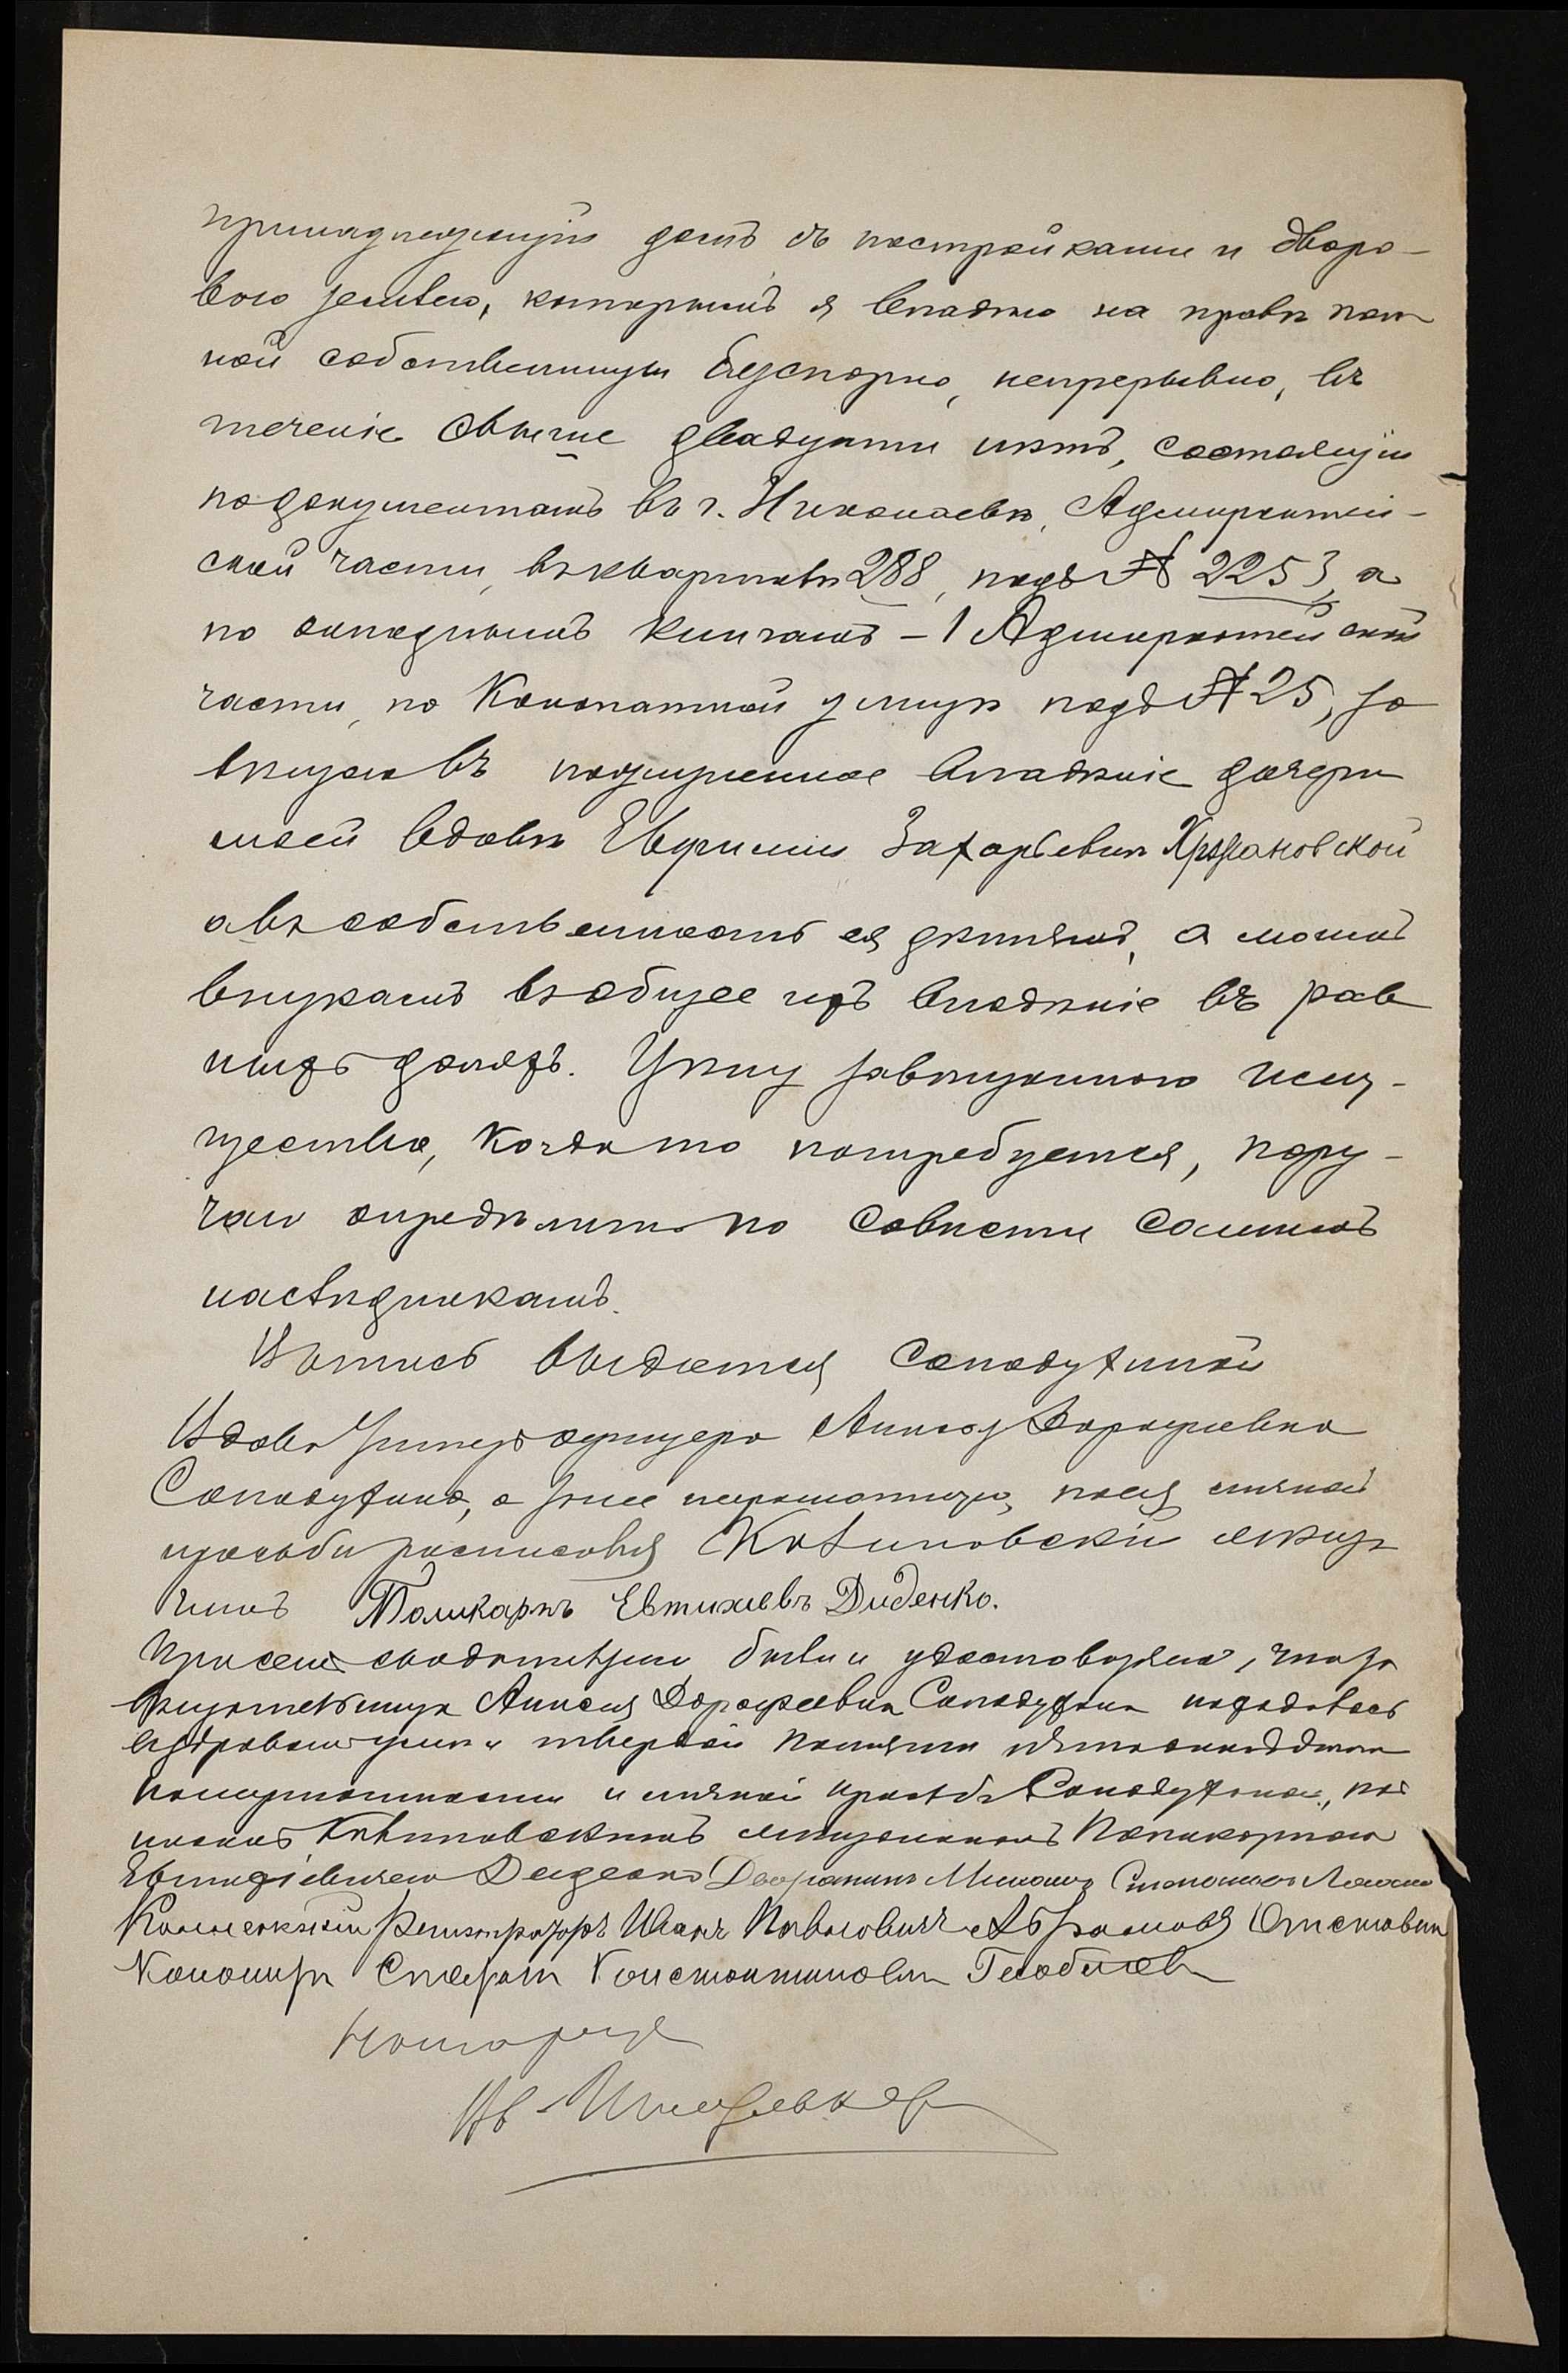 принадлежащій домъ съ постройками и дворо-
вою землею, которымъ я владѣю на правѣ пол
ной собственности безспорно, непрерывно, въ
теченіе свыше двадцати лѣтъ, состоящій
по документамъ въ г. Николаевѣ, Адмиралтей-
ской части, въ кварталѣ 288, подъ № 2253, а
по окладнымъ книгамъ – 1 Адмиралтейской
части, по Конопатной улицѣ подъ № 25, за
вѣщаю въ пожизненное владѣніе дочери
моей вдовѣ Евфиміи Захарьевнѣ Хржановской
а въ собственность ея дѣтямъ, а моимъ
внукамъ въ общее ихъ владѣніе въ рав
ныхъ доляхъ. Цѣну завѣщаннаго иму-
щества, когда то потребуется, пору-
чаю опредѣлить по совѣсти самимъ
наслѣдникамъ.
Выпись выдается Солодухиной
Вдова Унтеръ офицера Анисія Дорофеевна
Солодухина, а за нее неграмотную, по ея личной
просьбѣ росписался Калиновскій мѣщ
нинъ Поликарпъ Евтихіевъ Диденко.
При семъ свидѣтелями были и удостовѣряемъ, что за
вѣщательница Анисія Дорофеевна Солодухина находилась
въ здравомъ умѣ и твердой памяти
неграмотности и личной просьбѣ Солодухиной, под
мѣщаниномъ Поликарпомъ
Евтихіевичемъ Диденко Дворянинъ
Коллежскій Регистраторъ Иванъ Павловичъ Абрамовъ Отставной
Канониръ Константиновъ
Нотаріусъ